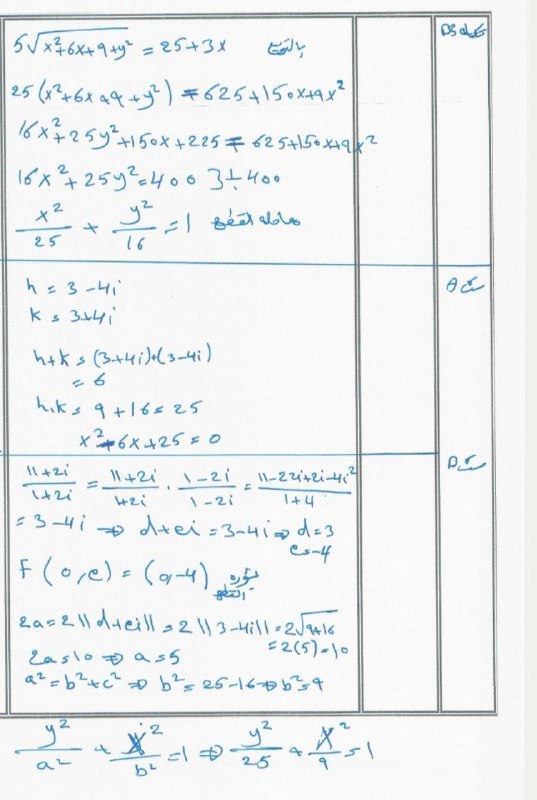 تكملة D5
5√x²+6x+9+y² = 25+3x بالتربيع
25(x²+6x+9+y²) = 625+150x+9x²
16x²+25y²+150x+225 = 625+150x+9x²
16x²+25y²=400 ]÷400
x²/25 + y²/16 =1 معادلة القطع
h = 3-4i
k = 3+4i
h+k = (3+4i)+(3-4i)
= 6
h.k = 9+16=25
x²-6x+25=0
11+2i/1+2i = 11+2i/1+2i · 1-2i/1-2i = 11-22i+2i-4i²/1+4
=3-4i ⇒ d+ei=3-4i ⇒ d=3
e=-4
F(0,e) = (0,-4) بؤرة القطع
2a=2||d+ei||=2||3-4i||=2√9+16
=2(5)=10
2a=10 ⇒ a=5
a²=b²+c² ⇒ b²=25-16 ⇒ b²=9
y²/a² + x²/b² =1 ⇒ y²/25 + x²/9 =1